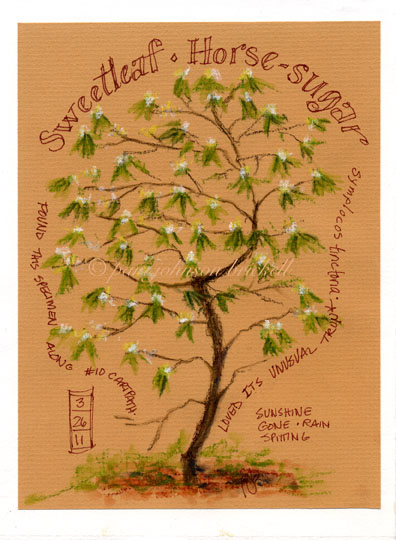 Sweetleaf · Horse-sugar
Symplocos tinctoria ·
FOUND THIS SPECIMEN ALONG #10 CARTPATH.
LOVED ITS UNUSUAL
© pam johnson brickell
3
26
11
SUNSHINE
GONE · RAIN
SPITTING